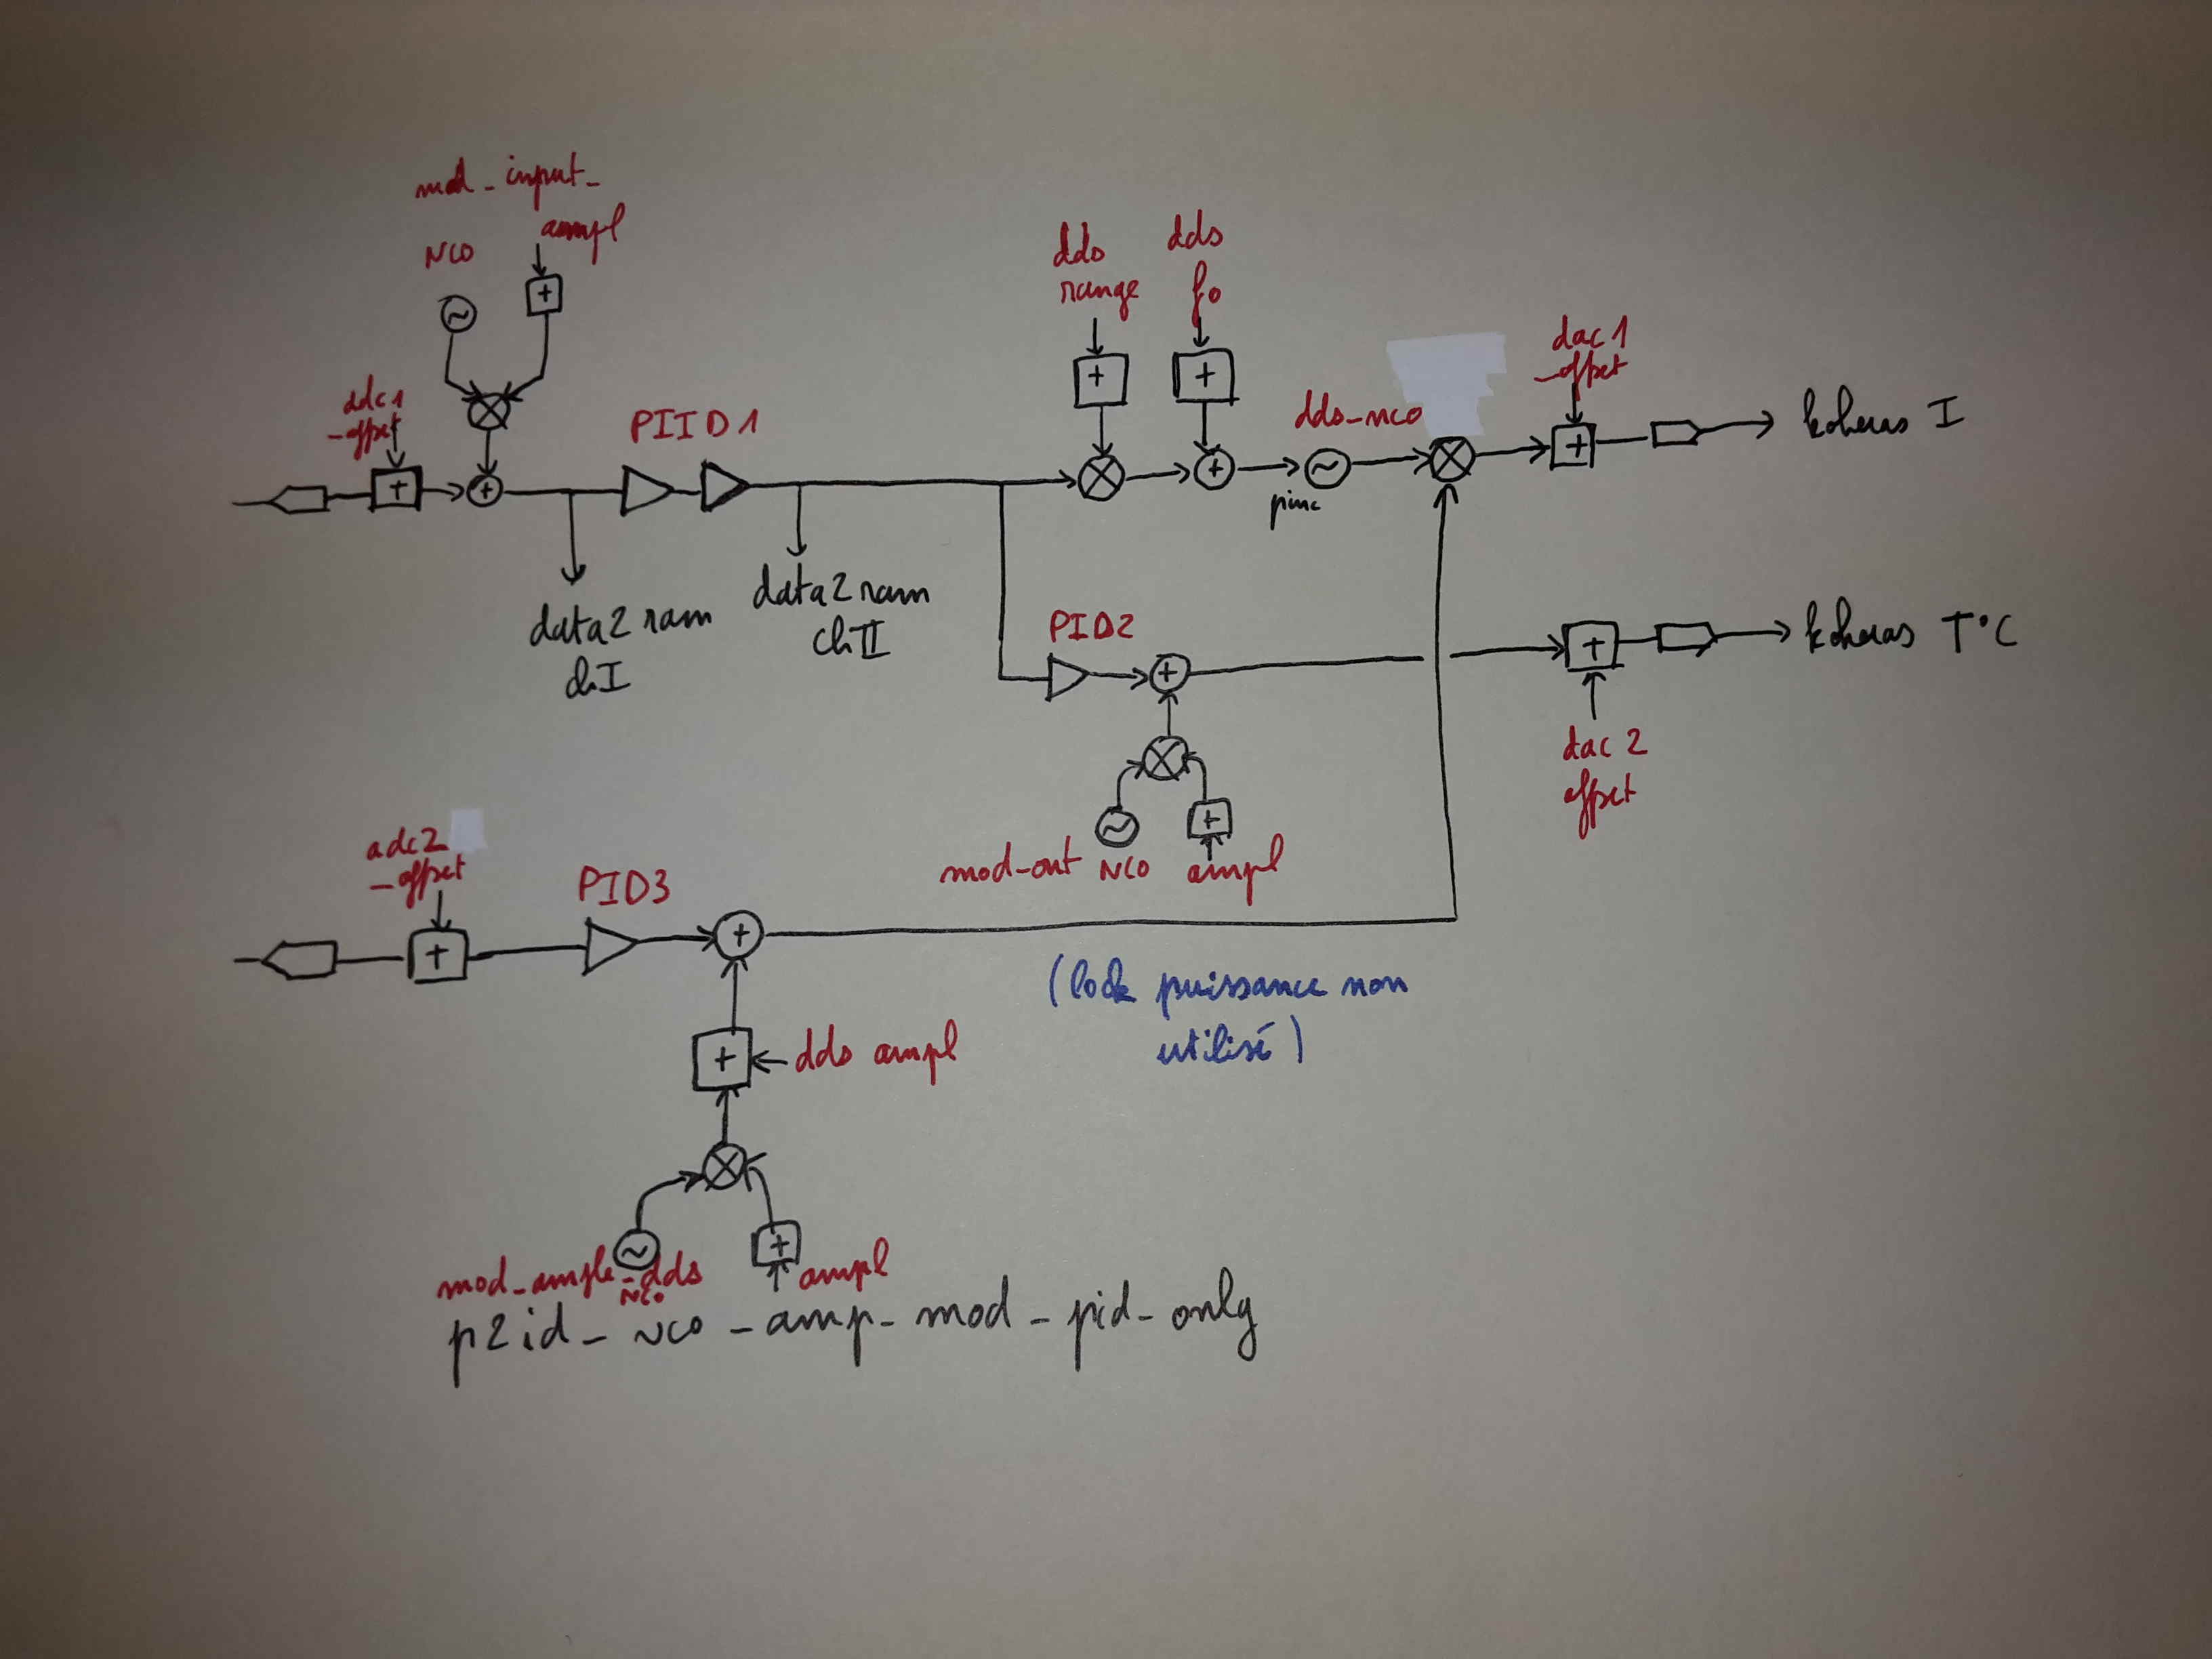 mod_input_
ampl
NCO
adc1
_offset
PIID1
data2ram
chI
data2ram
chII
dds
range
dds
f0
dds_nco
pinc
dac1
_offset
koheras I
PID2
koheras T°C
dac 2
offset
mod_out NCO ampl
adc2
_offset
PID3
(lock puissance non
utilisé)
dds ampl
mod_ample_dds
NCO
ampl
p2id_NCO_amp_mod_pid_only